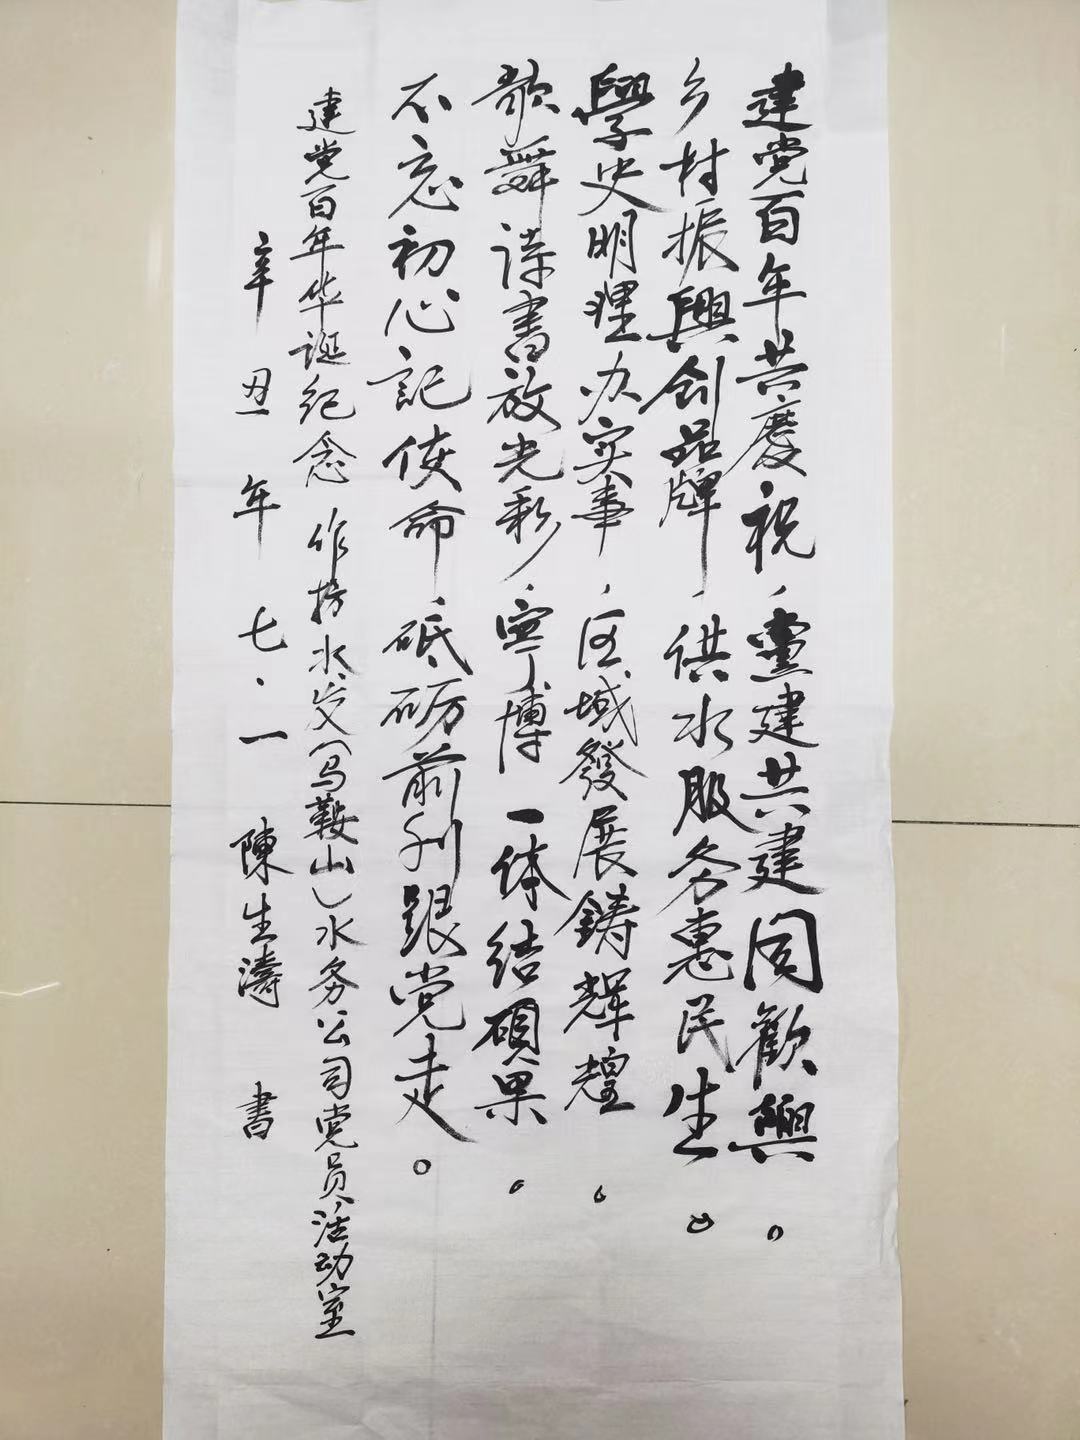 建党百年共慶祝，黨建共建同歡興。
乡村振興创品牌，供水服务惠民生。
學史明理办实事，区域發展鋳輝煌。
歌舞诗書放光彩，寧博一体结碩果。
不忘初心記使命，砥砺前列跟党走。
建党百年华诞纪念 作於水发（马鞍山）水务公司党员活动室
辛丑年七·一 陳生濤 書